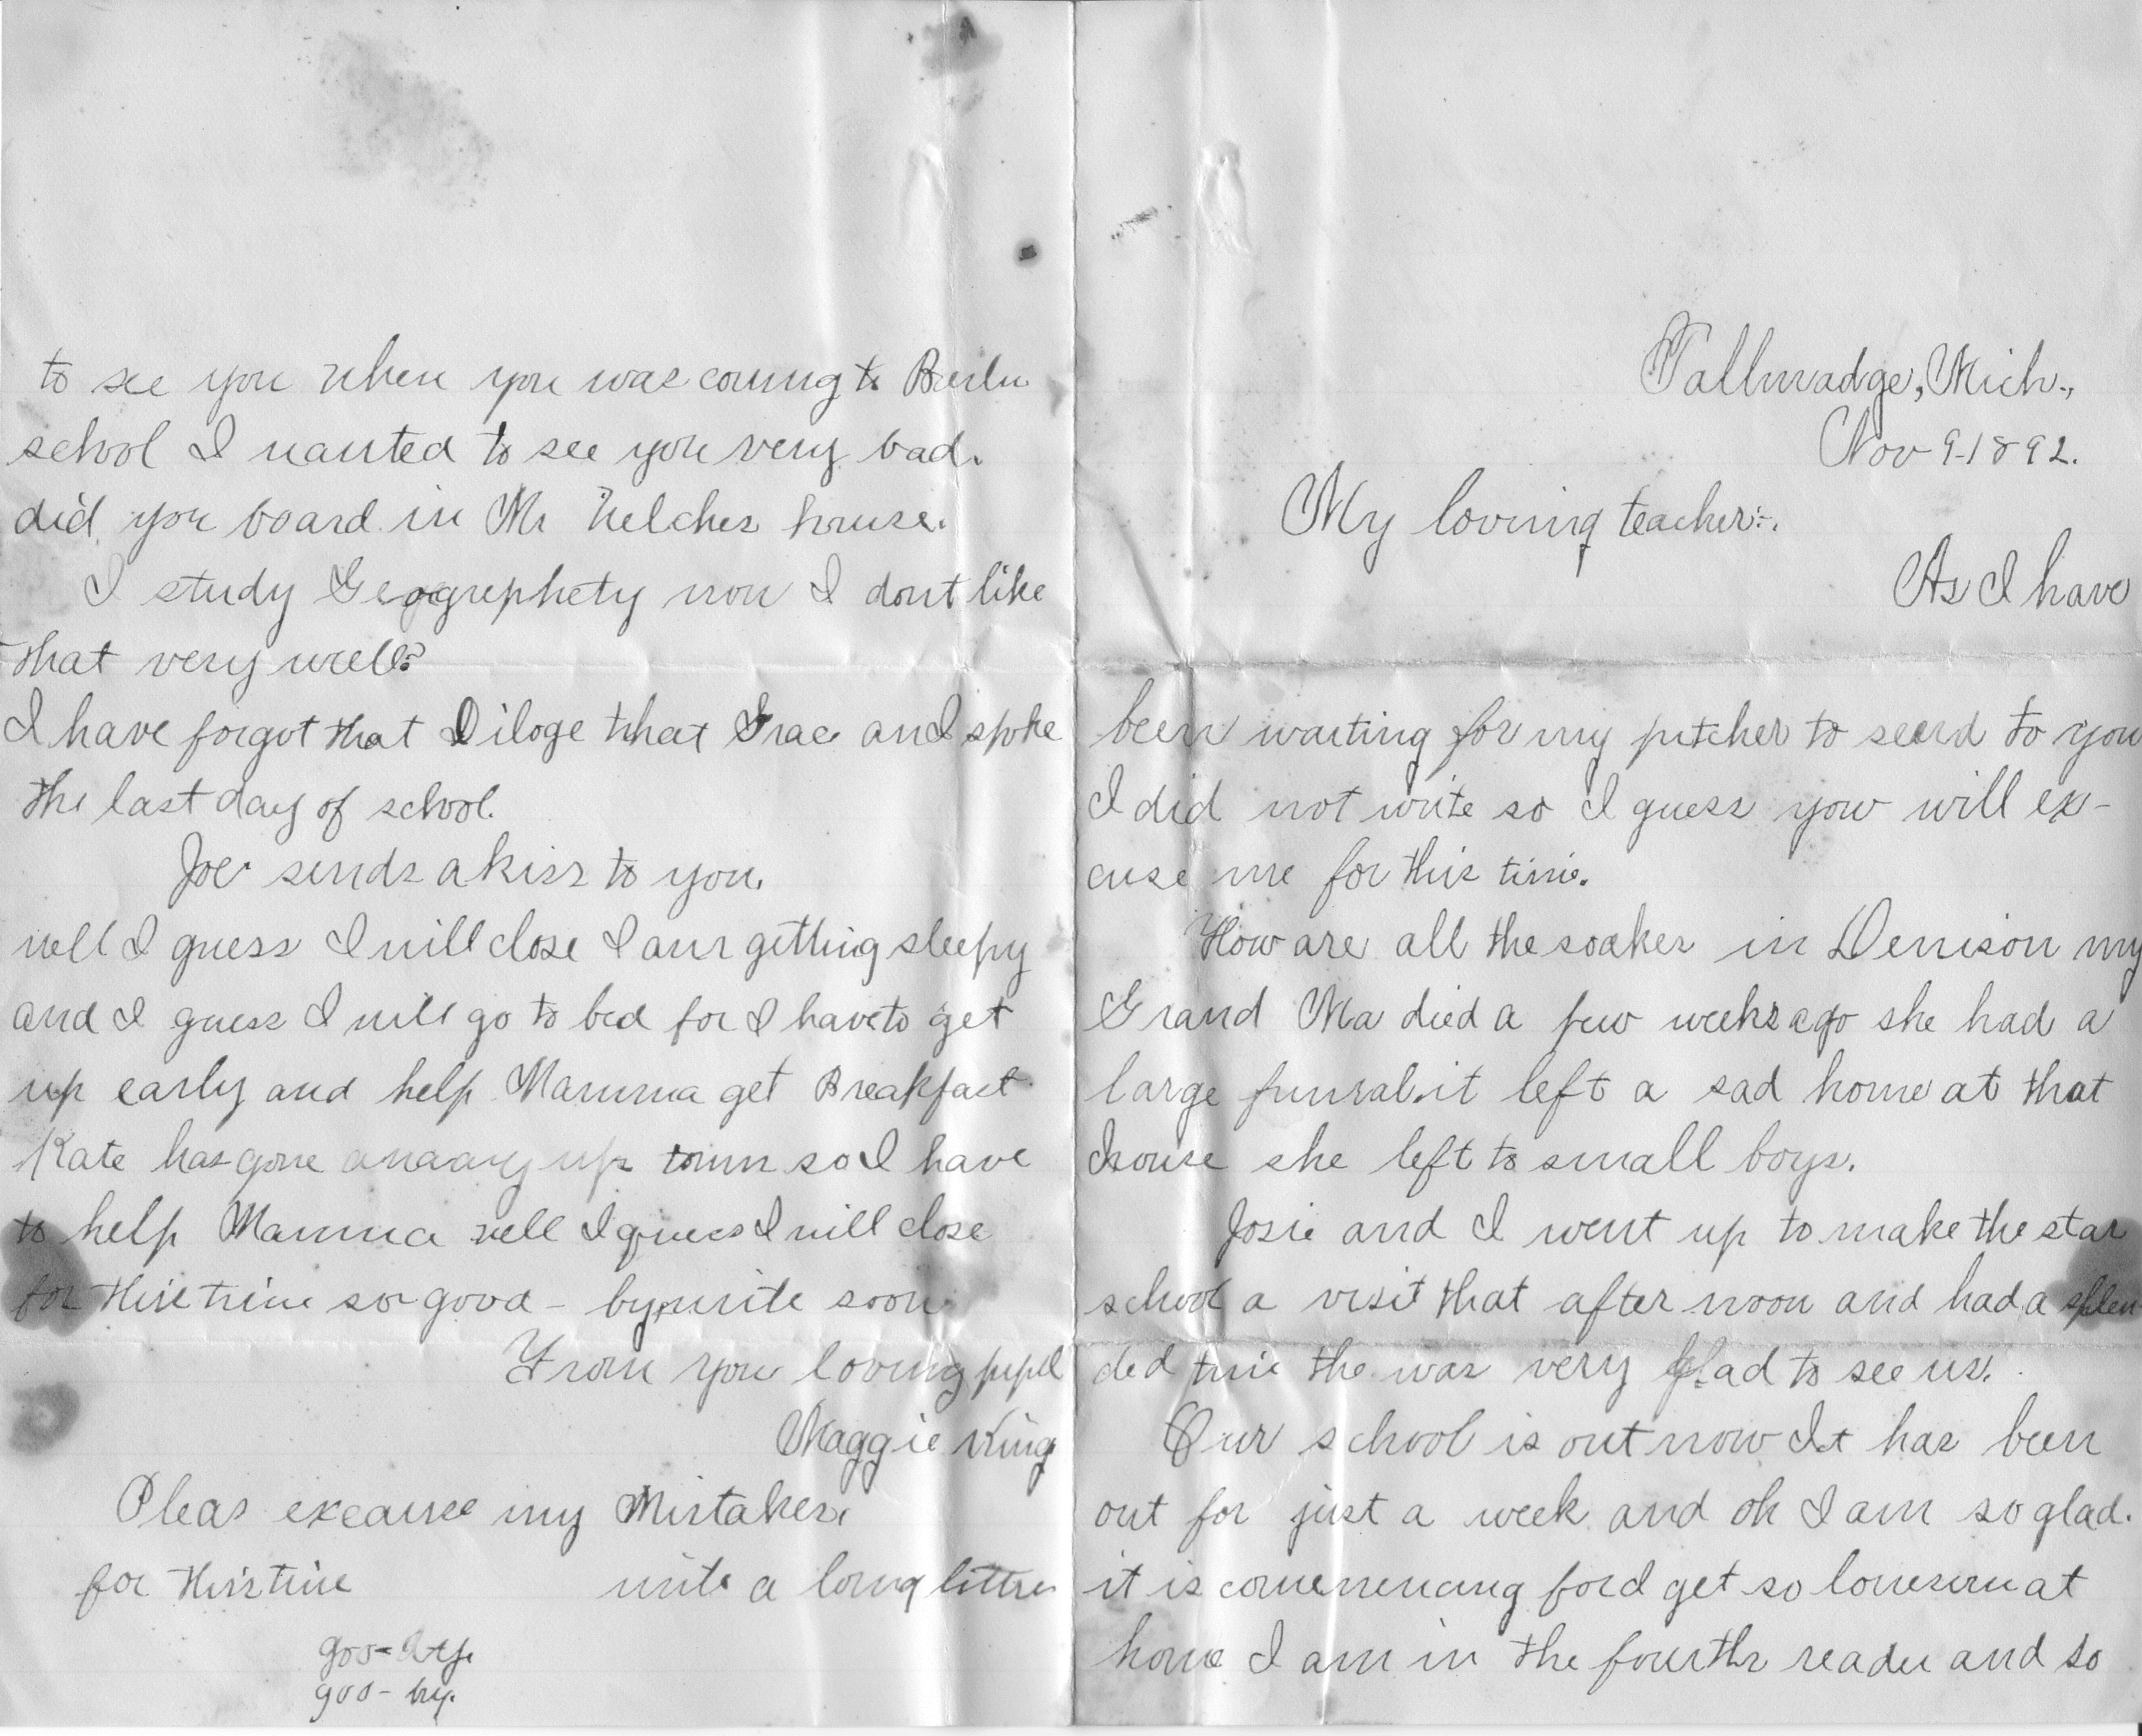 Tallmadge, Mich.,
Nov 9-1892.
My loving teacher:-.
As I have
been waiting for my pitcher to seend to you
I did not write so I guess you will ex-
cuse me for this time.
How are all the soaker in Denison my
Grand Ma died a few weeks ago she had a
large funral. it left a sad home at that
house she left to small boys.
Josie and I went up to make the star
school a visit that after noon and had a splen
ded time the was very glad to see us.
Our school is out now It has been
out for just a week and oh I am so glad.
it is commencing get so lonesom at
home I am in the fourth reader and so
to see you when you was coming to Berlin
school I wanted to see you very bad.
did you board in Mr house.
I study Geogrephety now I dont like
that very well?
I have forgot that Diloge that Grace and I spoke
the last day of school.
Joe sends a kiss to you.
well I guess I will close I am getting sleepy
and I guess I will go to bed for I have to get
up early and help Mamma get Breakfast
Kate has gone up town so I have
to help Mamma well I guess I will close
for this time so good-by, write soon
From you loving pupil
Maggie King
Pleas my Mistakes.
for this time write a long letter
goo-by.
goo-by.